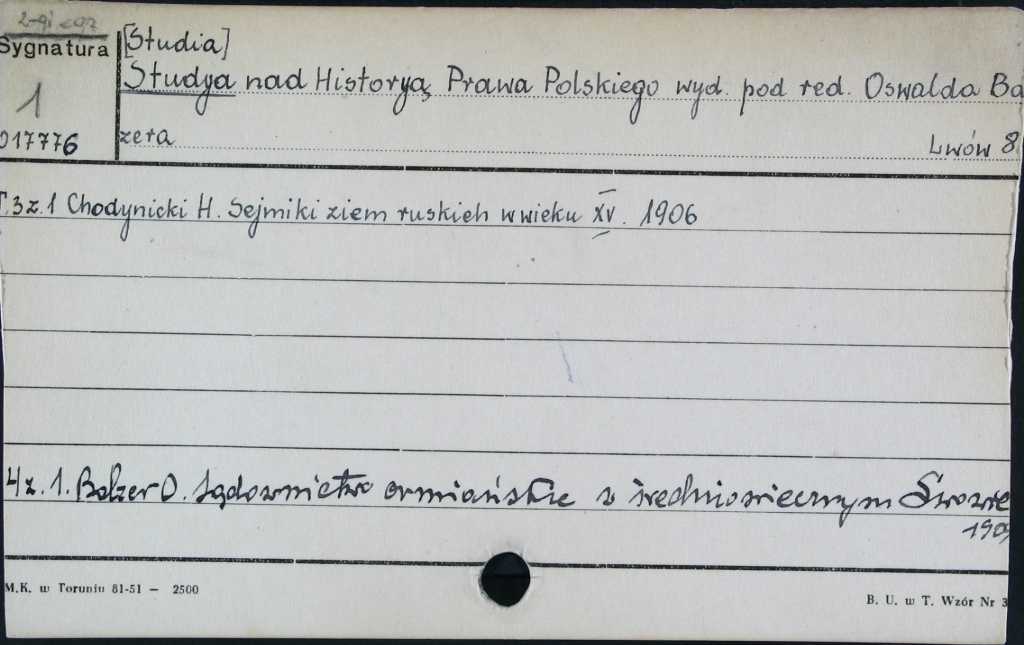 2-gi egz
Sygnatura
[Studia]
Studya nad Historyą Prawa Polskiego wyd. pod red. Oswalda Ba
1
017776
zera
Lwów 8
T.3 z.1 Chodynicki H. Sejmiki ziem ruskich w wieku XV. 1906
4 z. 1. Balzer O. Sądownictwo ormiańskie w średniowiecznym Lwowie
1909
M.K. w Toruniu 81-51 — 2500
B. U. w T. Wzór Nr 3